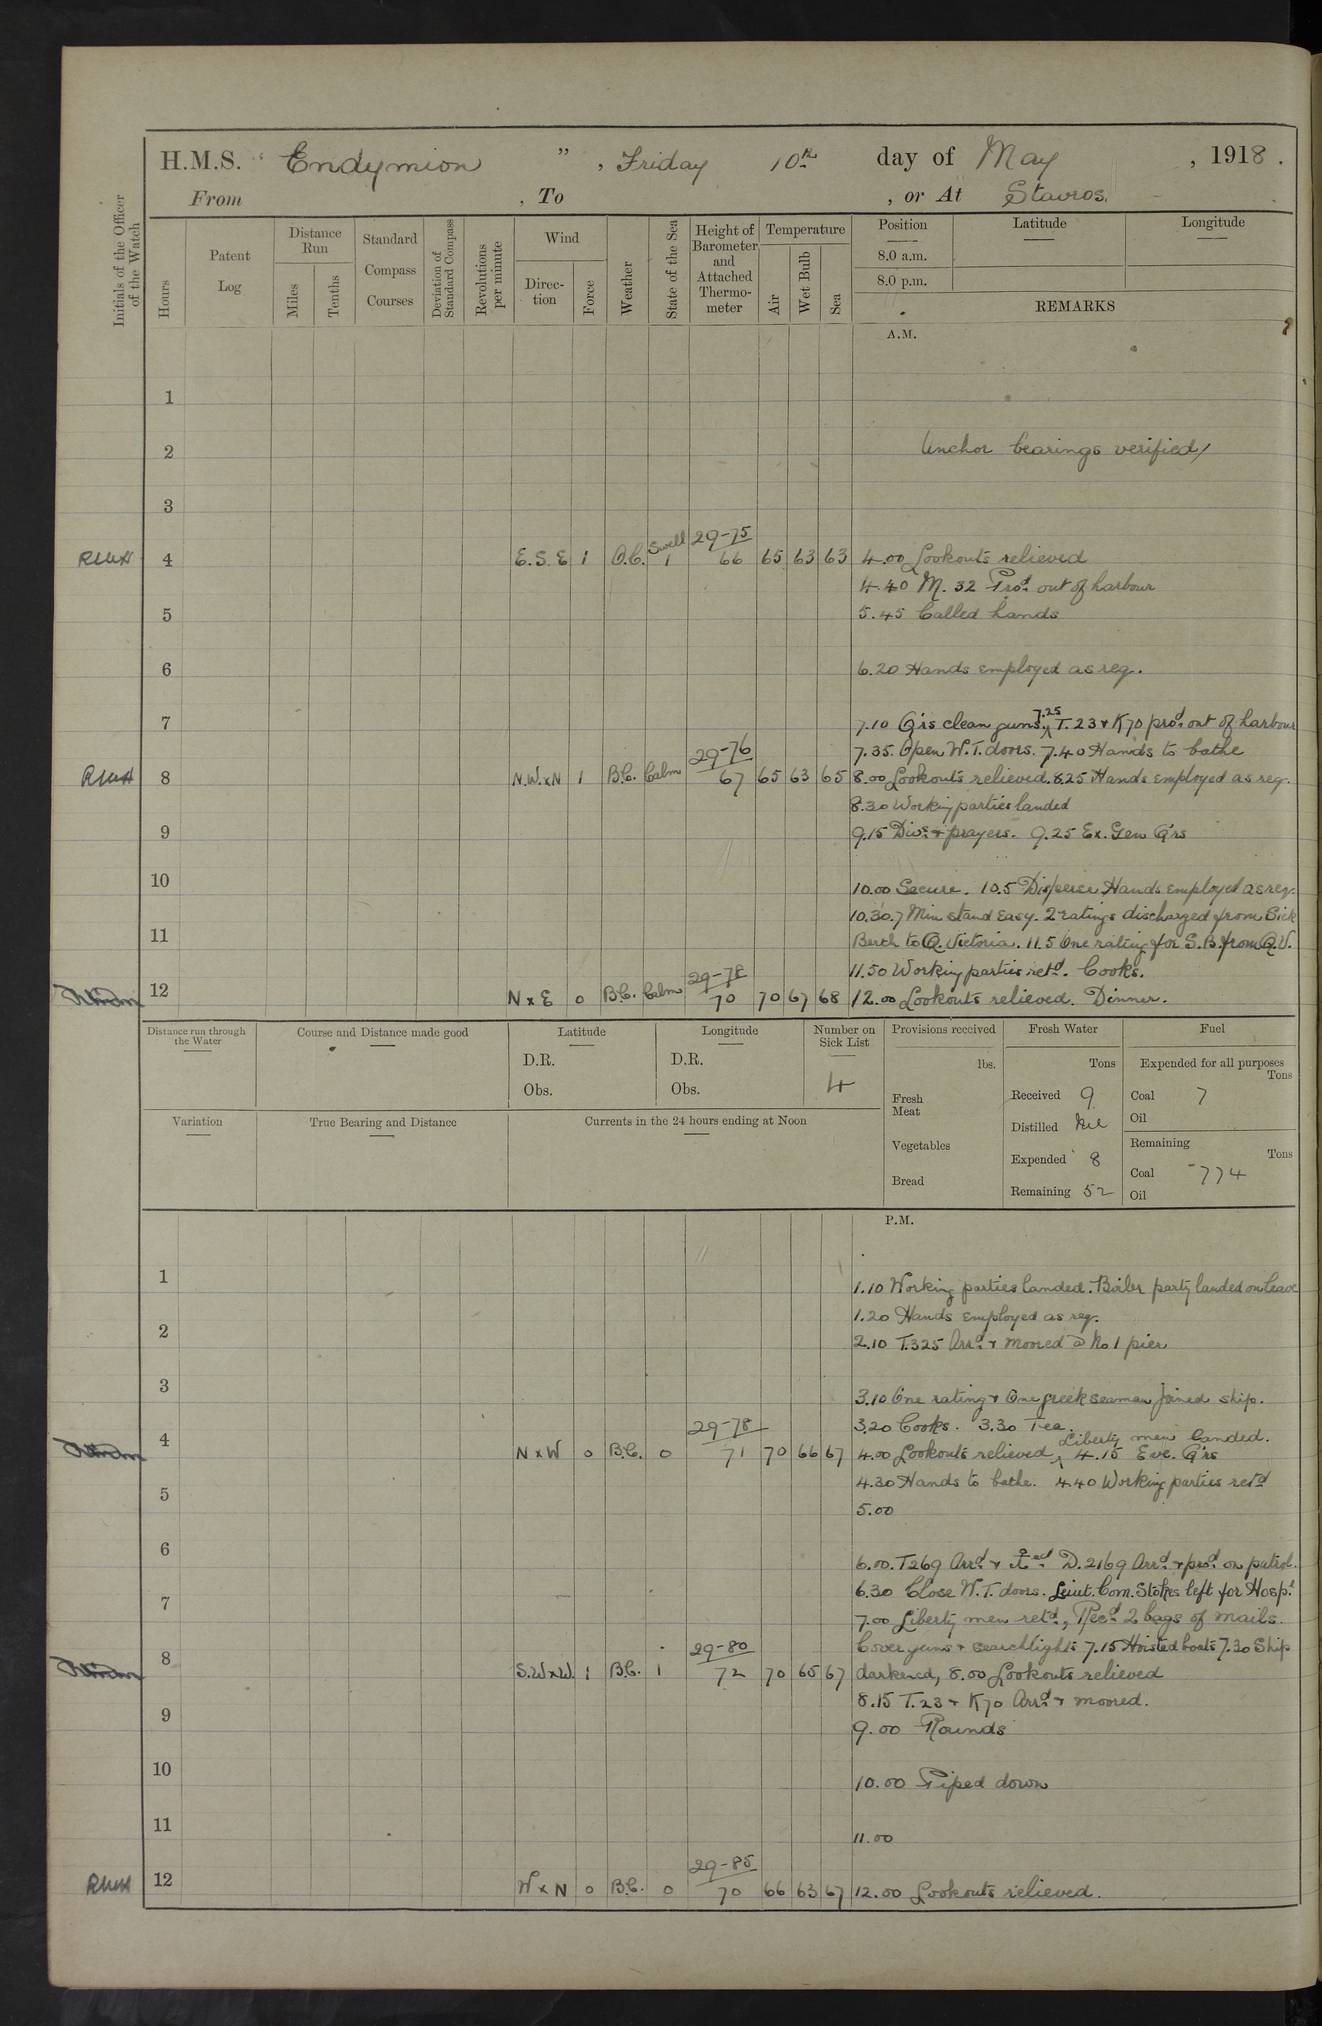 H.M.S. "Endymion", Friday 10th day of May, 1918.
From , To , or At Stavros.
Initials of the Officer of the Watch
Hours
Patent Log
Distance Run
Miles
Tenths
Standard Compass Courses
Deviation of Standard Compass
Revolutions per minute
Wind
Direction
Force
Weather
State of the Sea
Height of Barometer and Attached Thermometer
Temperature
Air
Wet Bulb
Sea
Position
8.0 a.m.
8.0 p.m.
Latitude
Longitude
REMARKS
A.M.
1
2 Anchor bearings verified/
3
4 E.S.E 1 O.C. Swell 1 29-75 66 65 63 63 4.00 Lookouts relieved
4.40 M. 32 Prod. out of harbour
5 5.45 Called hands
6 6.20 Hands employed as req.
7 7.10 Q'rs clean guns. 7.25 T.23 + K70 prod. out of harbour
7.35. Open W.T. doors. 7.40 Hands to bathe
8 N.W.xN 1 B.C. Calm 29-76 67 65 63 65 8.00 Lookouts relieved. 8.25 Hands employed as req.
8.30 Working parties landed
9 9.15 Divs. + prayers. 9.25 Ex. Gen Q'rs
10 10.00 Secure. 10.5 Disperse Hands employed as req.
10.30. 7 Min stand easy. 2 ratings discharged from Sick
11 Berth to Q. Victoria. 11.5 One rating for S.B. from Q.V.
11.50 Working parties retd. Cooks.
12 N x E 0 B.C. Calm 29-78 70 70 67 68 12.00 Lookouts relieved. Dinner.
Distance run through the Water
Course and Distance made good
Latitude
D.R.
Obs.
Longitude
D.R.
Obs.
Number on Sick List
4
Provisions received
lbs.
Fresh Meat
Vegetables
Bread
Fresh Water
Tons
Received 9
Distilled Nil
Expended 8
Remaining 52
Fuel
Expended for all purposes
Tons
Coal 7
Oil
Remaining
Tons
Coal 774
Oil
Variation
True Bearing and Distance
Currents in the 24 hours ending at Noon
P.M.
1 1.10 Working parties landed. Boiler party landed on leave
1.20 Hands employed as req.
2 2.10 T.325 Arrd. + moored @ No 1 pier
3 3.10 One rating + One greek seaman joined ship.
3.20 Cooks. 3.30 Tea.
Liberty men landed.
4 N x W 0 B.C. 0 29-78 71 70 66 67 4.00 Lookouts relieved 4.15 Eve. Q'rs
4.30 Hands to bathe. 4.40 Working parties retd
5 5.00
6 6.00. T269 Arrd. + D.2169 Arrd. + prod. on patrol.
6.30 Close W.T. doors. Lieut. Com. Stokes left for Hospl.
7 7.00 Liberty men retd., Recd. 2 bags of mails.
Cover guns + searchlights 7.15 Hoisted boats 7.30 Ship
8 S.WxW. 1 B.C. 1 29-80 72 70 65 67 darkened, 8.00 Lookouts relieved
8.15 T.23 + K70 Arrd. + moored.
9 9.00 Rounds
10 10.00 Piped down
11 11.00
12 W x N 0 B.C. 0 29-85 70 66 63 67 12.00 Lookouts relieved.